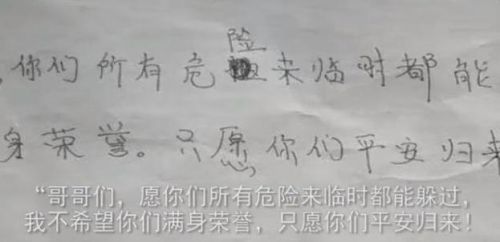 险
你们所有危来临时都能
身荣誉。只愿你们平安归来
“哥哥们，愿你们所有危险来临时都能躲过，
我不希望你们满身荣誉，只愿你们平安归来！